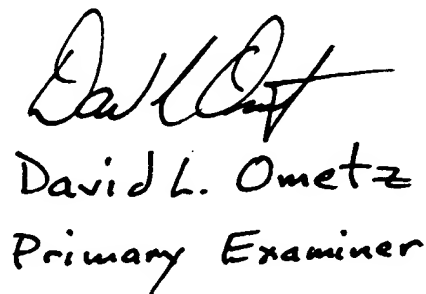 David L. Ometz
David L. Ometz
Primary Examiner